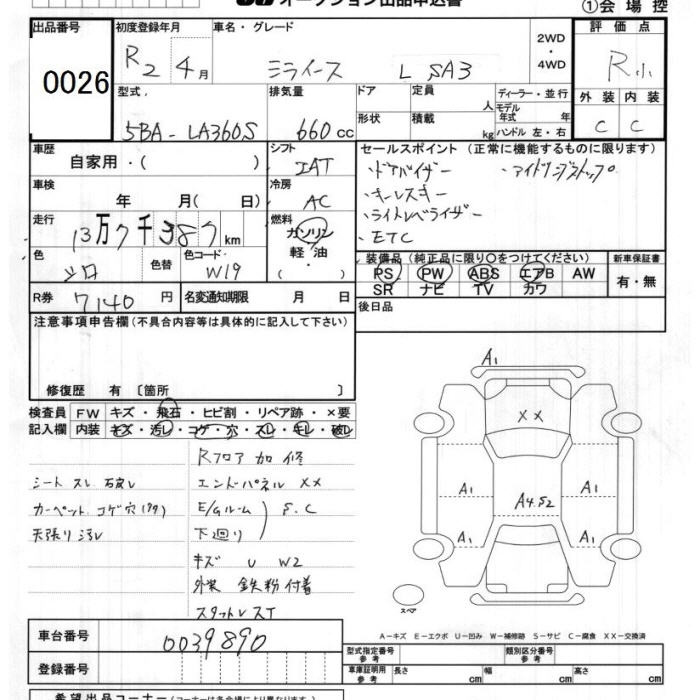 オークション出品申込書
①会場控
出品番号 初度登録年月 車名・グレード 2WD・4WD 評価点
0026 R2 4月 ミライース L SA3 R小
型式 排気量 ドア 定員 人 ディーラー・並行 外装 内装
5BA-LA360S 660cc 形状 積載 kg モデル年式 年 ハンドル 左・右 C C
車歴 自家用・( ) シフト IAT セールスポイント(正常に機能するものに限ります)
・ドアバイザー ・アイドリングストップ
車検 年 月(日) 冷房 AC ・キーレスキー
走行 13万7千387km 燃料 ガソリン ・ライトレベライザー
軽油 ・ETC
色 シロ 色替 色コード W19 装備品(純正品に限り○をつけてください) 新車保証書
PS PW ABS エアB AW 有・無
SR ナビ TV カワ
R券 7140円 名変通知期限 月 日 後日品
注意事項申告欄(不具合内容等は具体的に記入して下さい)
修復歴 有 〔箇所 〕
検査員 FW キズ・飛石・ヒビ割・リペア跡・×要
記入欄 内装 キズ・汚レ・コゲ・穴・スレ・キレ・破レ
Rフロア 加修
シート スレ 破レ エンドパネル XX
カーペット コゲ穴 E/Gルーム S.C
天張り汚レ 下廻り
キズ U W2
外装 鉄粉付着
スタットレスT
A1
XX
A1 A1
A4.S2
A1 A1
スペア
A-キズ E-エクボ U-凹み W-補修跡 S-サビ C-腐食 XX-交換済
車台番号 0039890 型式指定番号 参考 類別区分番号 参考
登録番号 車庫証明用 参考 長さ cm 幅 cm 高さ cm
希望出品コーナー